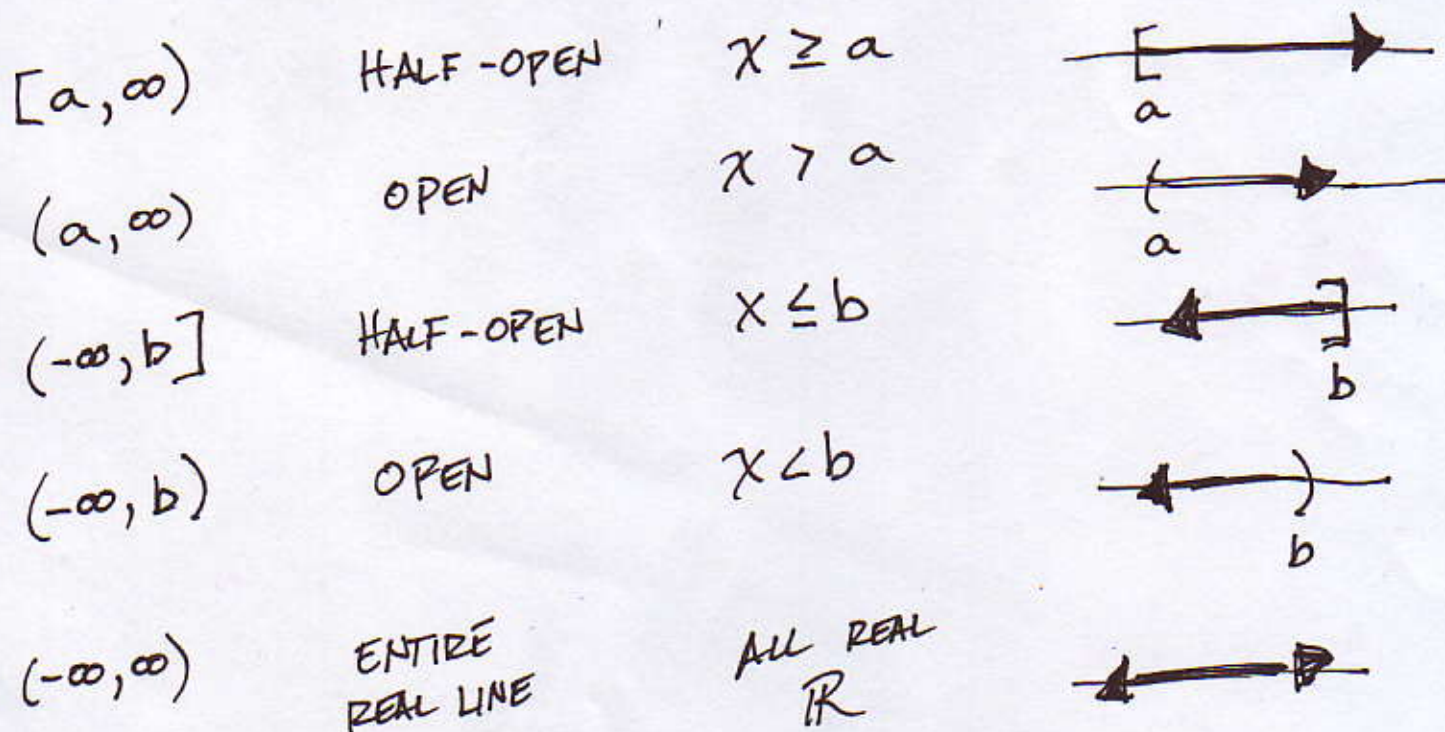 [a, ∞) HALF-OPEN x ≥ a [ a
(a, ∞) OPEN x > a ( a
(-∞, b] HALF-OPEN x ≤ b ] b
(-∞, b) OPEN x < b ) b
(-∞, ∞) ENTIRE REAL LINE ALL REAL ℝ